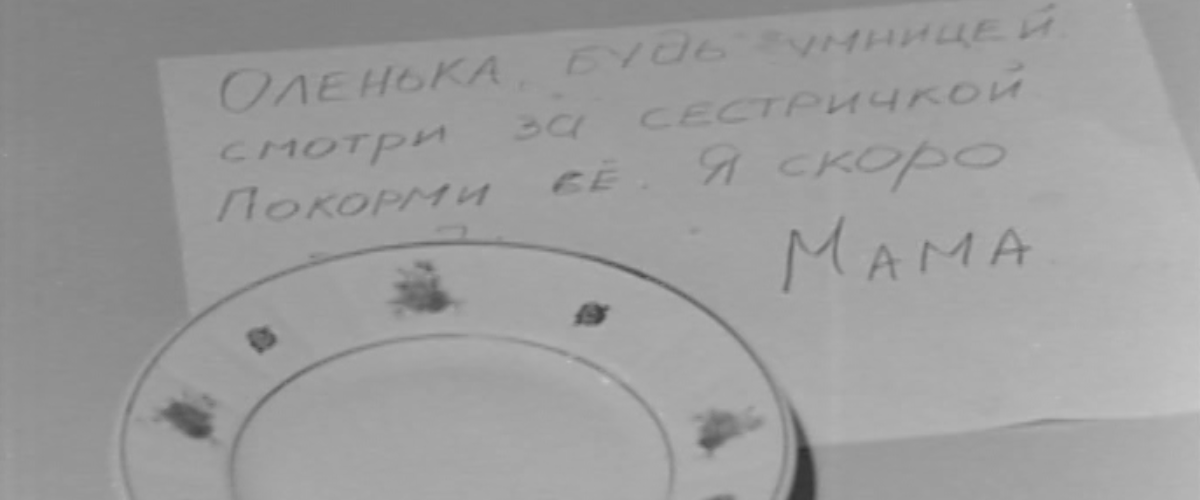 Оленька. будь умницей
смотри за сестричкой
Покорми её. Я скоро
Мама